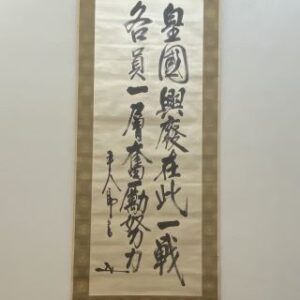 皇國興廢在此一戰
各員一層奮勵努力